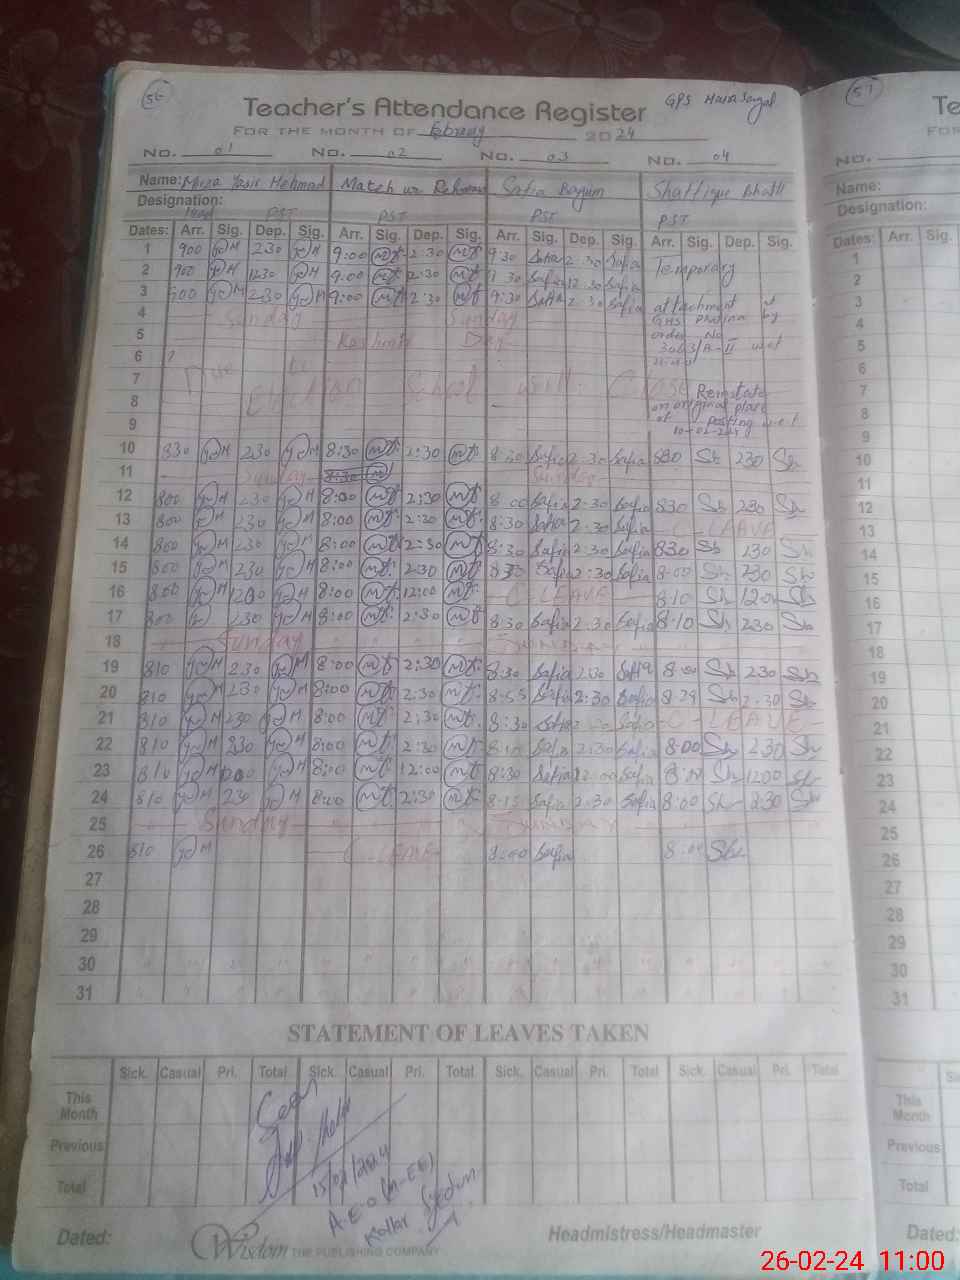 56
Teacher's Attendance Register
GPS
FOR THE MONTH OF Febraury 2024
NO. 01 NO. 02 NO. 03 NO. 04
Name: Mirza Yasir Mehmad Mateh ur Rehman Safia Bagum Shaffique Bhatti
Designation: Head PST PST PST PST
Dates: Arr. Sig. Dep. Sig. Arr. Sig. Dep. Sig. Arr. Sig. Dep. Sig. Arr. Sig. Dep. Sig.
1 900 2 30 9:00 2:30 9:30 Safia 2:30 Safia Temporary
2 900 1230 9:00 2:30 9:30 Safia 12:30 Safia
3 900 230 9:00 2:30 9:30 Safia 2:30 Safia attachment at
4 Sunday Sunday GHS by
5 Kashmir Day order No
6 3063/A-II w.e.f
7 Due to Election School will Close Reinstate
8 on original place
9 of posting w.e.f. 10-02-24
10 830 230 8:30 2:30 8:30 Safia 2:30 Safia 830 Sh 230 Sh
11 Sunday 8:30 Sunday
12 800 230 8:00 2:30 8:00 Safia 2:30 Safia 830 Sh 230 Sh
13 800 230 8:00 2:30 8:30 Safia 2:30 Safia C-LEAVE
14 800 230 8:00 2:30 8:30 Safia 2:30 Safia 830 Sh 230 Sh
15 800 230 8:00 2:30 8:30 Safia 2:30 Safia 8:00 Sh 230 Sh
16 800 1200 8:00 12:00 C-LEAVE 8:10 Sh 1200 Sh
17 800 230 8:00 2:30 8:30 Safia 2:30 Safia 8:10 Sh 230 Sh
18 Sunday SUNDAY
19 810 230 8:00 2:30 8:30 Safia 2:30 Safia 8:00 Sh 230 Sh
20 810 230 8:00 2:30 8:55 Safia 2:30 Safia 8:29 Sh 2:30 Sh
21 810 230 8:00 2:30 8:30 Safia Safia C-LEAVE
22 810 230 8:00 2:30 8:10 Safia 2:30 Safia 8:00 Sh 230 Sh
23 810 1200 8:00 12:00 8:30 Safia 12:00 Safia 8:00 Sh 1200 Sh
24 810 230 8:00 2:30 8:15 Safia 2:30 Safia 8:00 Sh 2:30 Sh
25 Sunday SUNDAY
26 810 C-LEAVE 8:00 Safia 8:00 Sh
27
28
29
30
31
STATEMENT OF LEAVES TAKEN
Sick. Casual Pri. Total Sick. Casual Pri. Total Sick. Casual Pri. Total Sick. Casual Pri. Total
This Month
Previous
Total
Seen
15/02/2024
A.E.O (M-EE)
Kallar Syedan
Dated: Wisdom THE PUBLISHING COMPANY Headmistress/Headmaster
57
Te
FOR
NO.
Name:
Designation:
Dates: Arr. Sig.
1
2
3
4
5
6
7
8
9
10
11
12
13
14
15
16
17
18
19
20
21
22
23
24
25
26
27
28
29
30
31
This Month
Previous
Total
Dated:
26-02-24 11:00